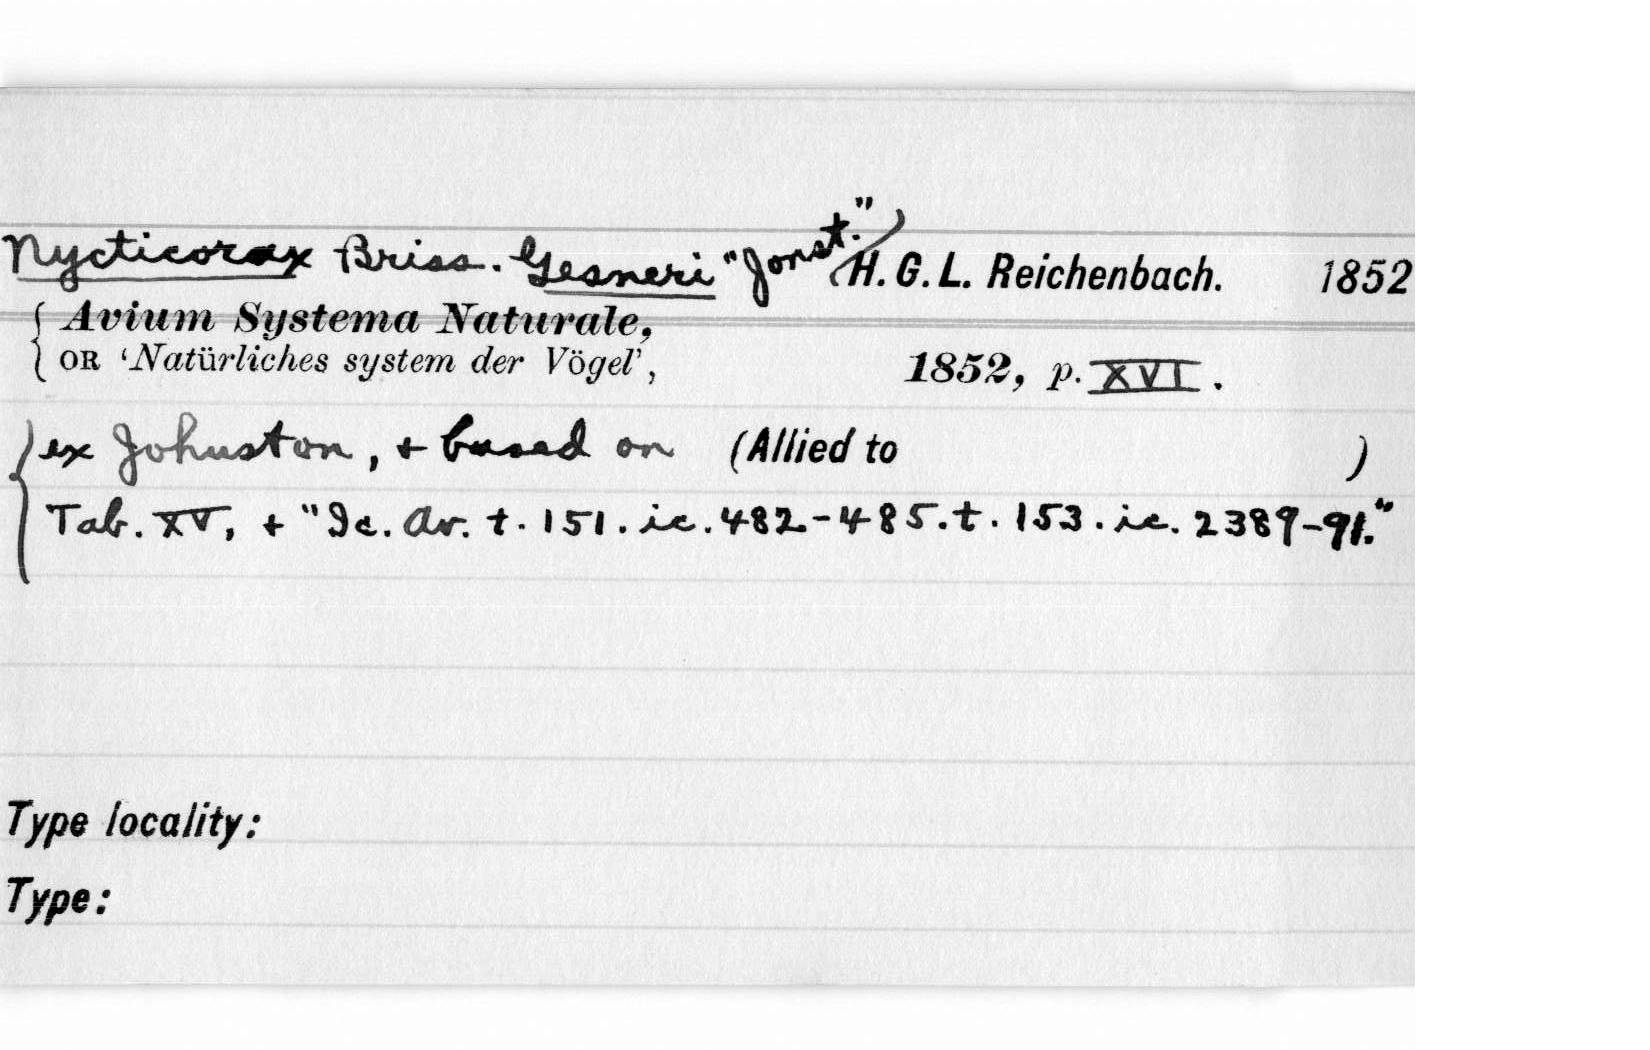 Nycticorax Briss. Gesneri "Jonst." H. G. L. Reichenbach. 1852
Avium Systema Naturale,
OR ‘Natürliches system der Vögel’, 1852, p. XVI.
ex Johnston, + based on (Allied to )
Tab. XV, + "Ic. Av. t. 151. ic. 482-485. t. 153. ic. 2389-91."
Type locality:
Type: